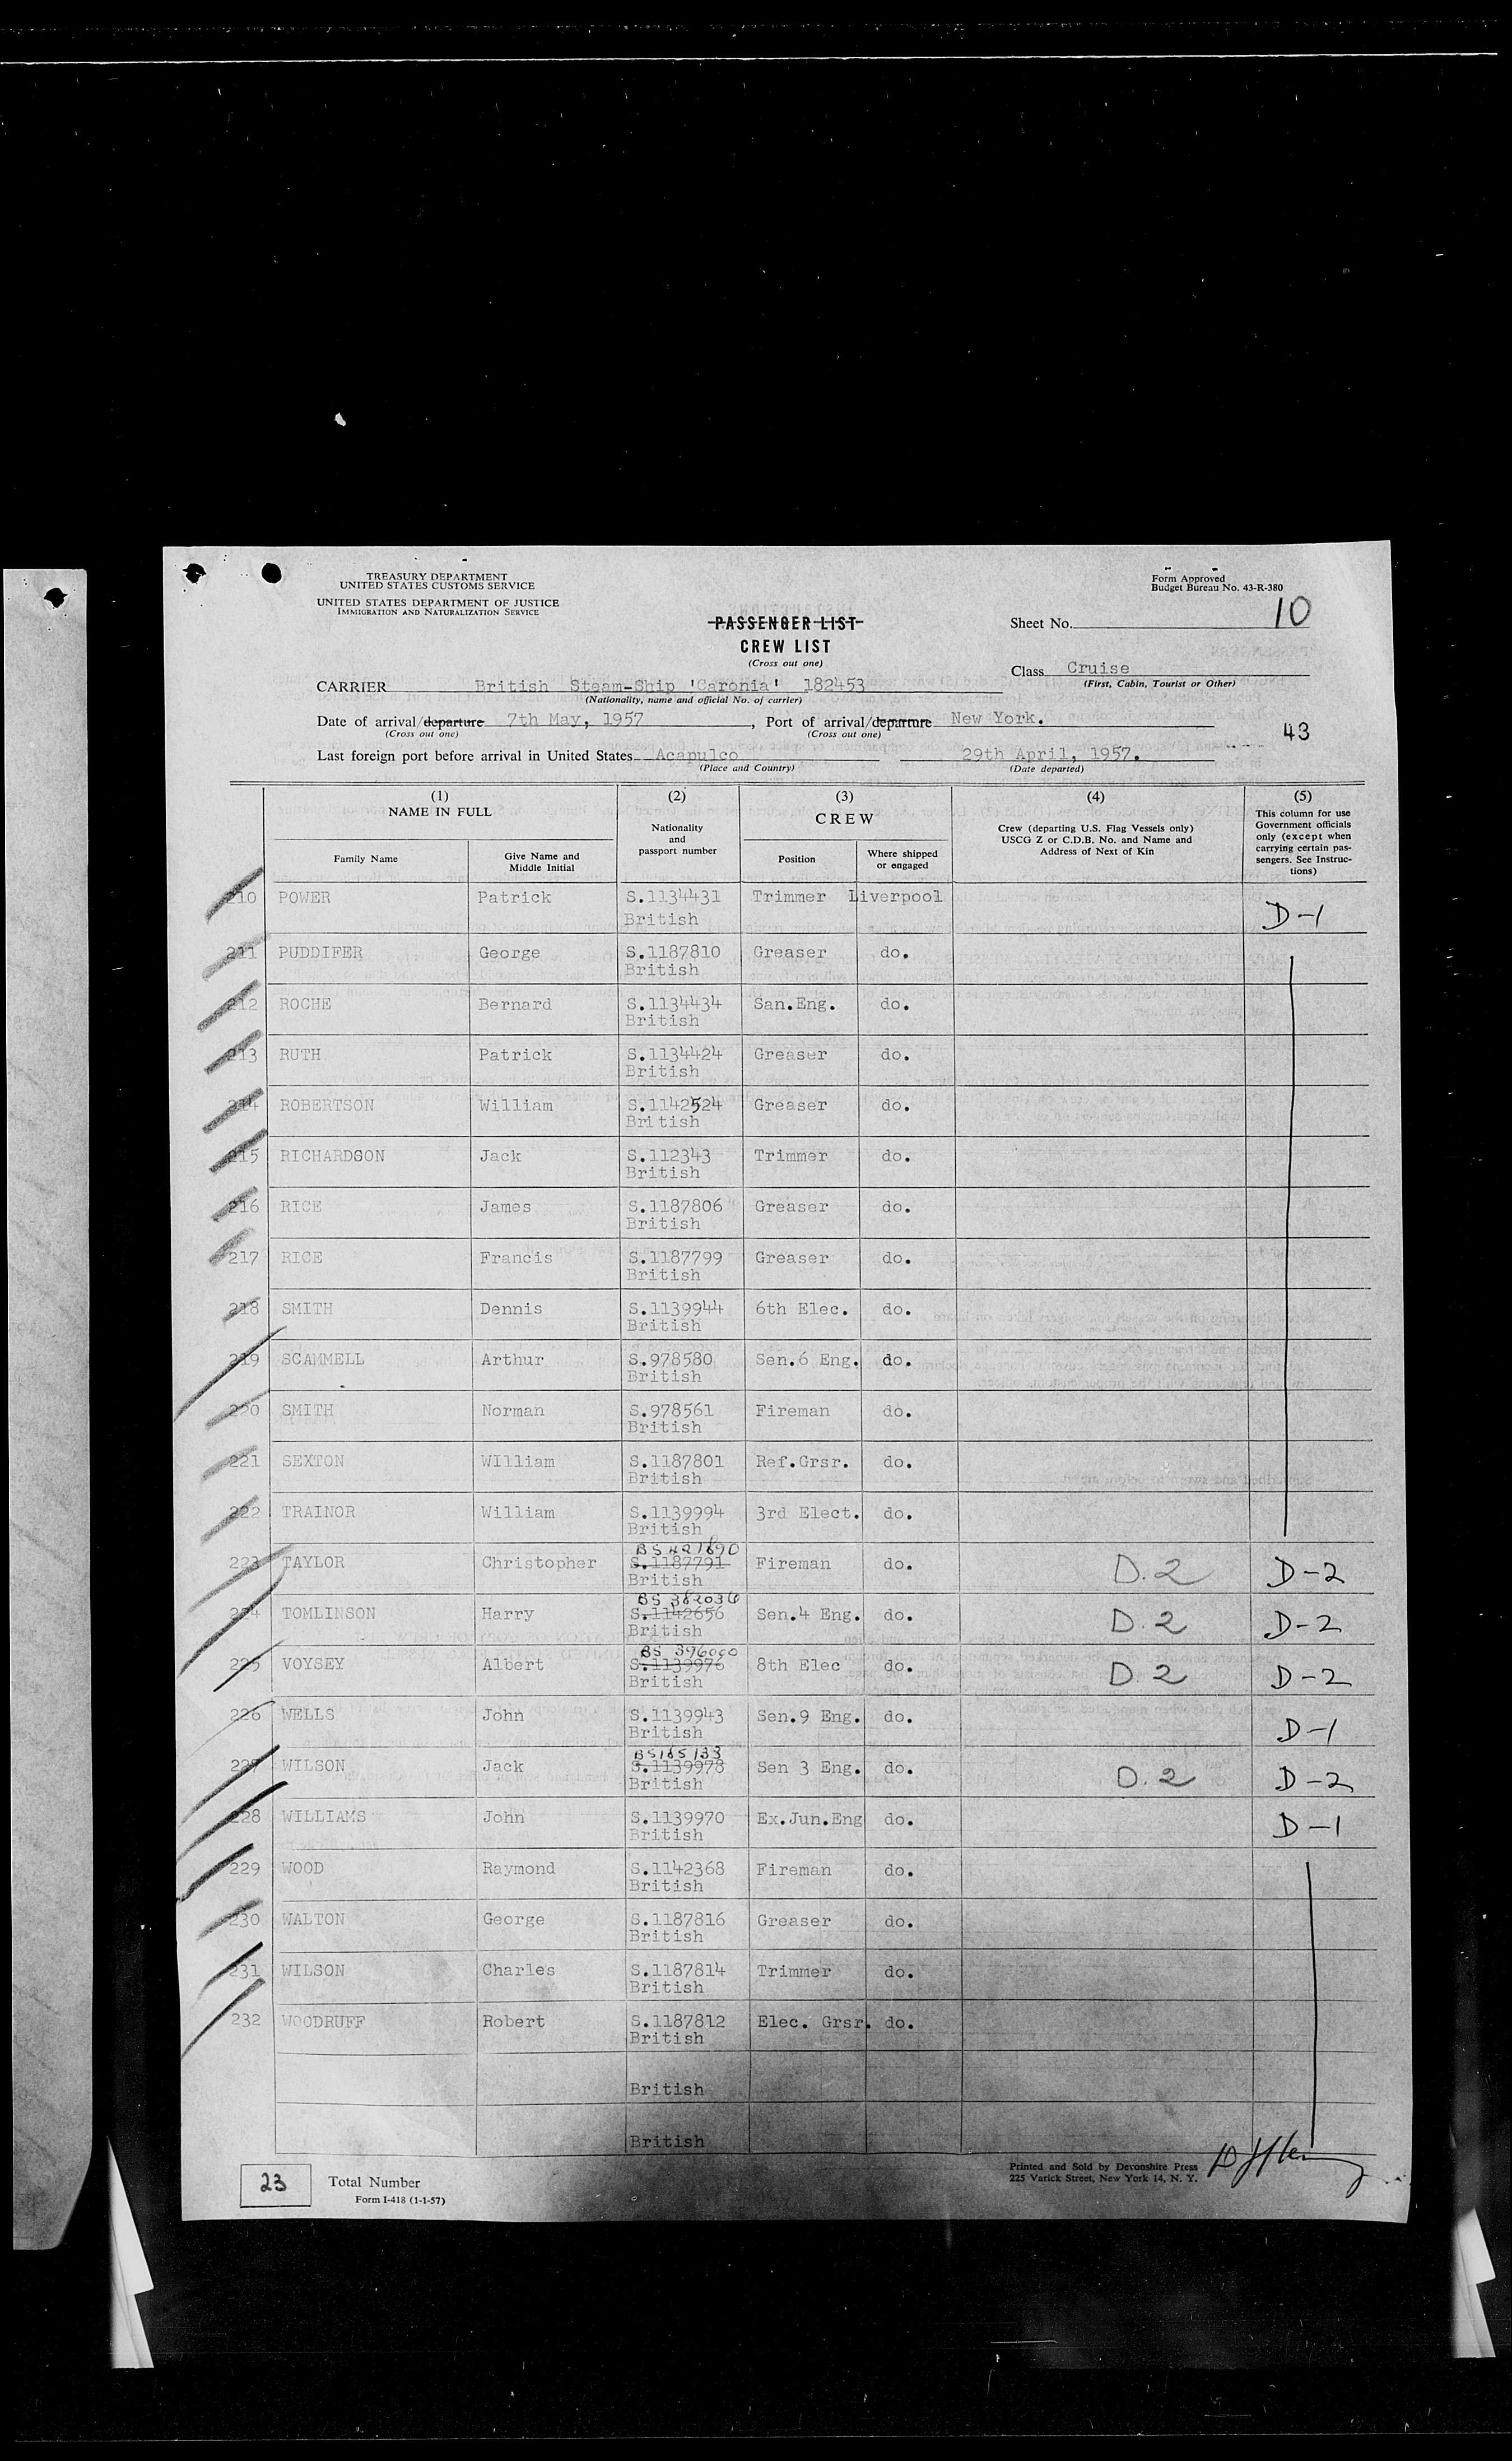 TREASURY DEPARTMENT
UNITED STATES CUSTOMS SERVICE
UNITED STATES DEPARTMENT OF JUSTICE
IMMIGRATION AND NATURALIZATION SERVICE
Form Approved
Budget Bureau No. 43-R-380
PASSENGER LIST
CREW LIST
(Cross out one)
Sheet No. 10
Class Cruise
(First, Cabin, Tourist or Other)
CARRIER British Steam-Ship 'Caronia' 182453
(Nationality, name and official No. of carrier)
Date of arrival/departure 7th May, 1957, Port of arrival/departure New York.
(Cross out one) (Cross out one)
43
Last foreign port before arrival in United States Acapulco 29th April, 1957.
(Place and Country) (Date departed)
(1) NAME IN FULL
Family Name
Give Name and Middle Initial
(2) Nationality and passport number
(3) CREW
Position
Where shipped or engaged
(4) Crew (departing U.S. Flag Vessels only) USCG Z or C.D.B. No. and Name and Address of Next of Kin
(5) This column for use Government officials only (except when carrying certain passengers. See Instructions)
210 POWER Patrick S.1134431 Trimmer Liverpool
British D-1
211 PUDDIFER George S.1187810 Greaser do.
British
212 ROCHE Bernard S.1134434 San.Eng. do.
British
213 RUTH Patrick S.1134424 Greaser do.
British
214 ROBERTSON William S.1142524 Greaser do.
British
215 RICHARDSON Jack S.112343 Trimmer do.
British
216 RICE James S.1187806 Greaser do.
British
217 RICE Francis S.1187799 Greaser do.
British
218 SMITH Dennis S.1139944 6th Elec. do.
British
219 SCAMMELL Arthur S.978580 Sen.6 Eng. do.
British
220 SMITH Norman S.978561 Fireman do.
British
221 SEXTON WIlliam S.1187801 Ref.Grsr. do.
British
222 TRAINOR William S.1139994 3rd Elect. do.
British
BS 421690
223 TAYLOR Christopher S.1187791 Fireman do. D.2 D-2
British
BS 382036
224 TOMLINSON Harry S.1142656 Sen.4 Eng. do. D.2 D-2
British
BS 396000
225 VOYSEY Albert S.1139976 8th Elec do. D.2 D-2
British
226 WELLS John S.1139943 Sen.9 Eng. do. D-1
British
BS165133
227 WILSON Jack S.1139978 Sen 3 Eng. do. D.2 D-2
British
228 WILLIAMS John S.1139970 Ex.Jun.Eng do. D-1
British
229 WOOD Raymond S.1142368 Fireman do.
British
230 WALTON George S.1187816 Greaser do.
British
231 WILSON Charles S.1187814 Trimmer do.
British
232 WOODRUFF Robert S.1187812 Elec. Grsr. do.
British
British
British
23 Total Number
Form I-418 (1-1-57)
Printed and Sold by Devonshire Press
225 Varick Street, New York 14, N. Y.